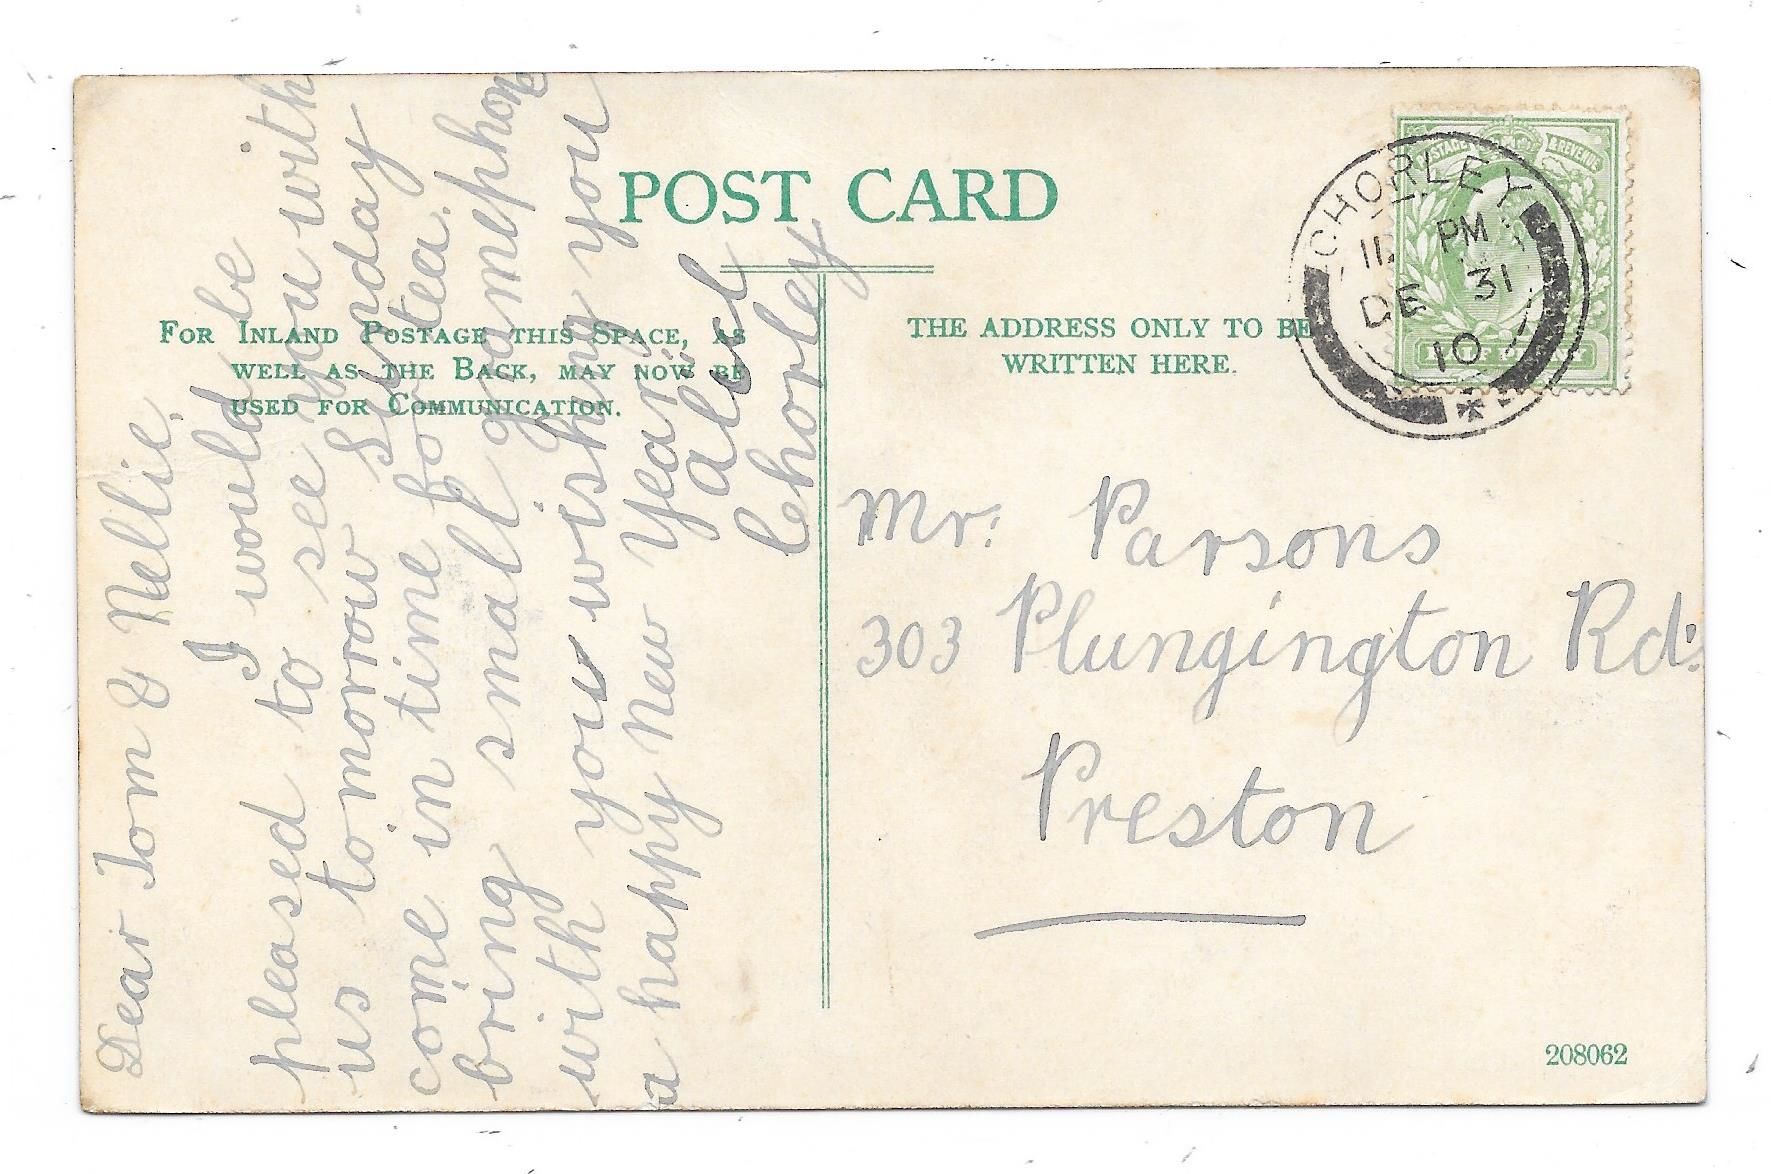 POST CARD
FOR INLAND POSTAGE THIS SPACE, AS
WELL AS THE BACK, MAY NOW BE
USED FOR COMMUNICATION.
THE ADDRESS ONLY TO BE
WRITTEN HERE.
POSTAGE & REVENUE
CHORLEY
PM
DE 31
10
Dear Tom & Nellie.
I would be
pleased to see you with
us tomorrow Sunday
come in time for tea.
bring small gramephone
with you wishing you
a happy New Year
Chorley
Mr. Parsons
303 Plungington Rd.
Preston
208062